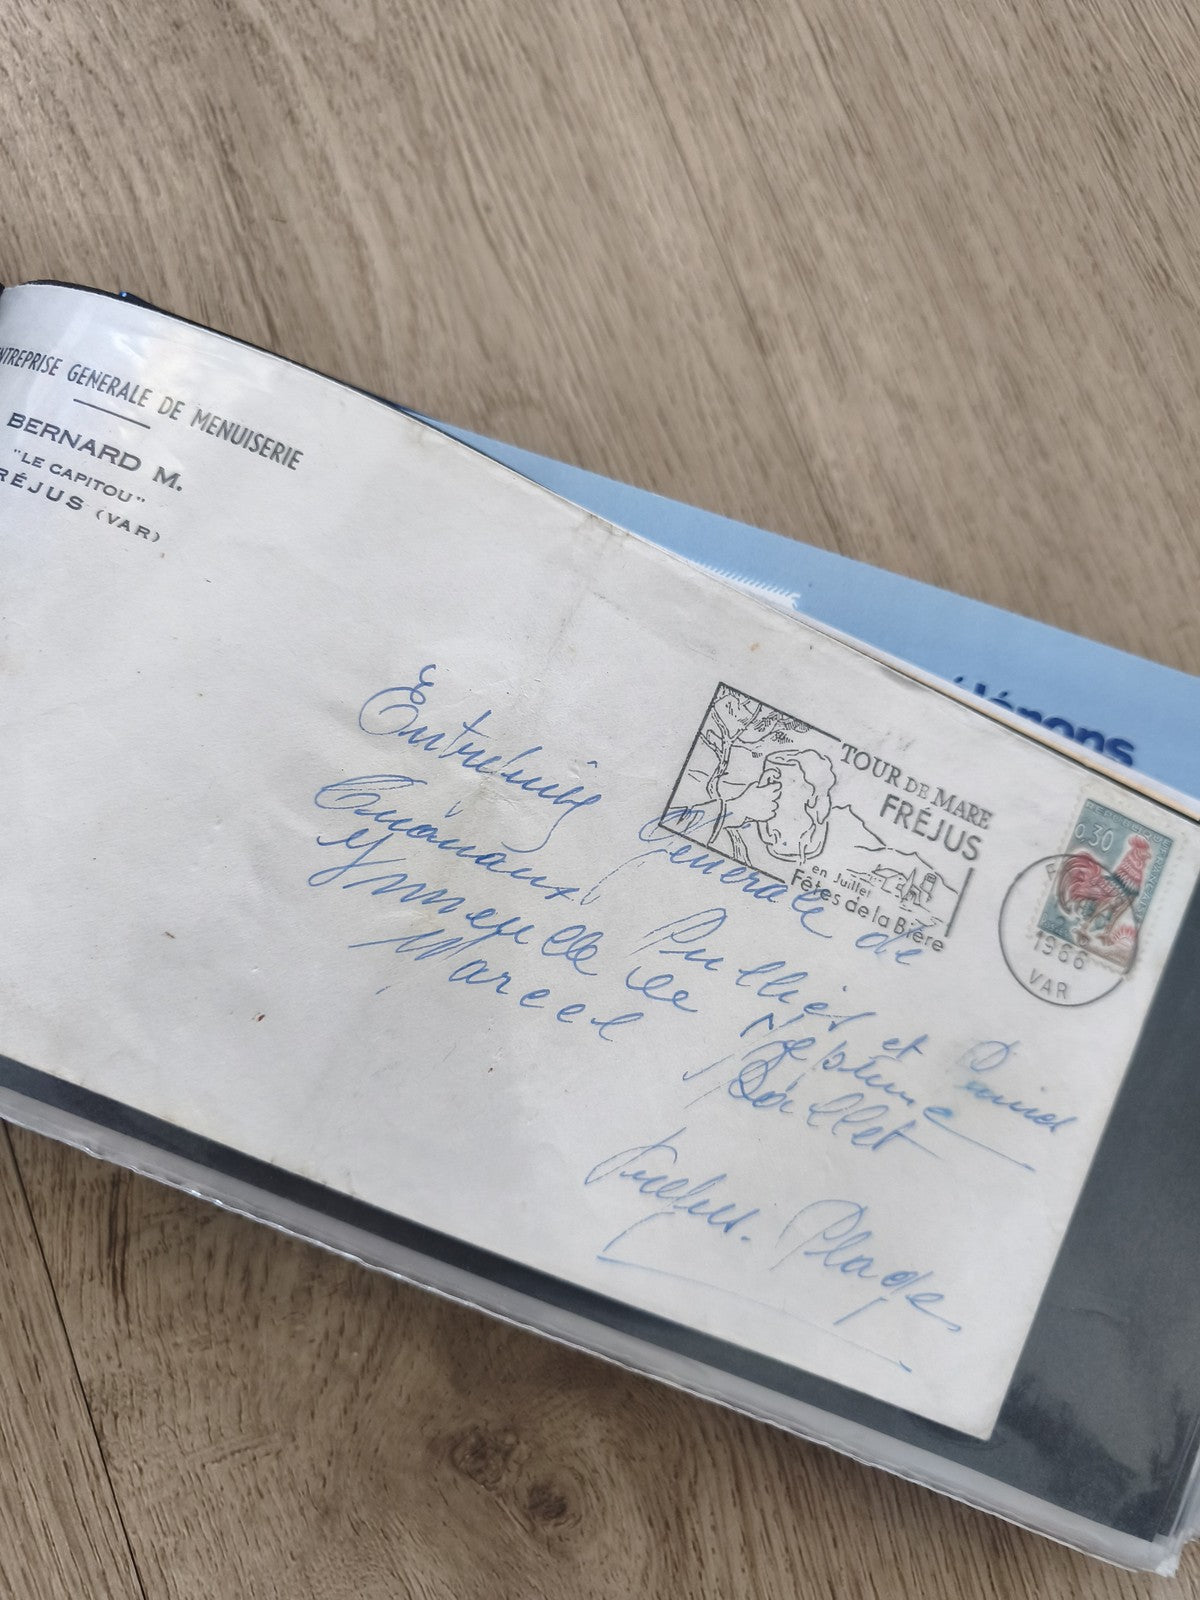 ENTREPRISE GENERALE DE MENUISERIE
BERNARD M.
"LE CAPITOU"
FRÉJUS (VAR)
TOUR DE MARE
FRÉJUS
en Juillet
Fêtes de la Bière
REPUBLIQUE FRANÇAISE
0,30
1966
VAR
Entreprise Générale de
Travaux Publics et Privés
Immeuble le Neptune
Marcel Baillet
Fréjus. Plage